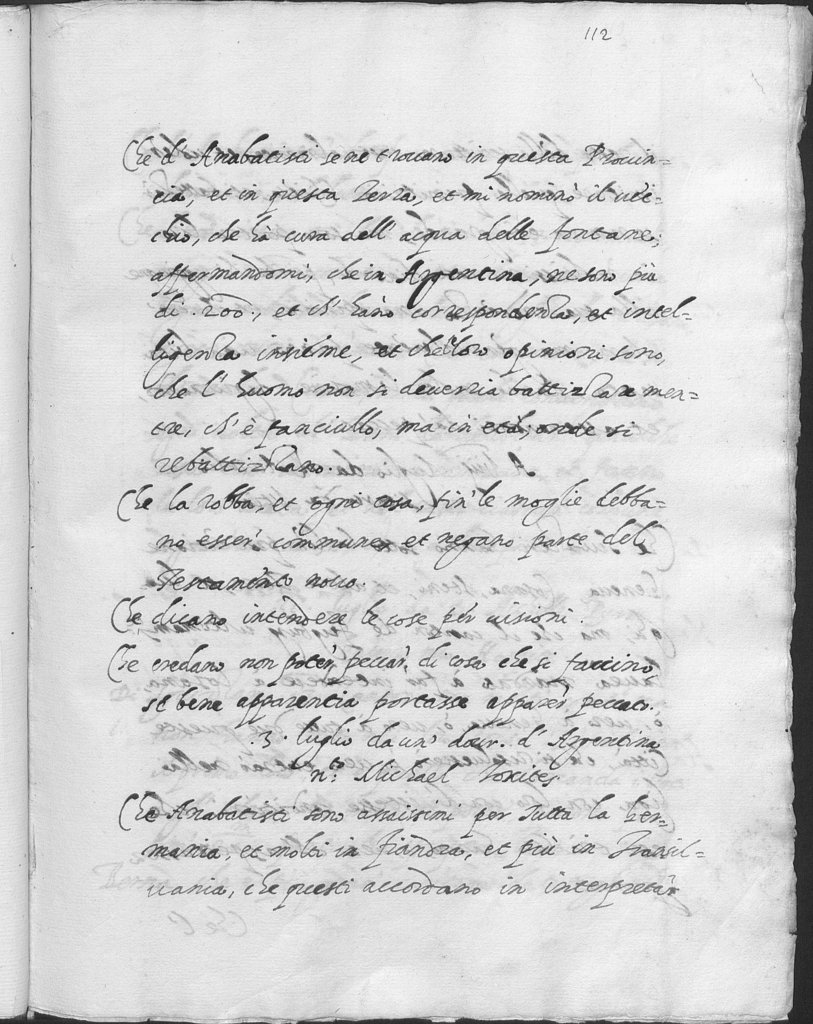 112
Che d' Anabatisti se ne trovano in questa Provin=
cia, et in questa Terra, et mi nominò il vec=
chio, che hà cura dell' acqua delle fontane,
affermandomi, che in Argentina, ne sono più
di .200., et ch' hano correspondenza, et intel=
ligenza insieme, et che loro opinioni sono,
che l' huomo non si deverria battizzare men=
tre, ch' è fanciullo, ma in età, onde si
rebattizzano.
Che la robba, et ogni cosa, fin' le moglie debba=
no esser' commune, et negano parte del
Testamento novo.
Che dicano intendere le cose per visioni.
Che credano non poter' peccar' di cosa che si faccino,
se bene apparentia portasse apparer' peccato.
.3. luglio da un' dour. d' Argentina
n.to Michael Toxites
Che Anabatisti sono assaissimi per tutta la Ger=
mania, et molti in fiandra, et più in Transil=
vania, che questi accordano in interpretar